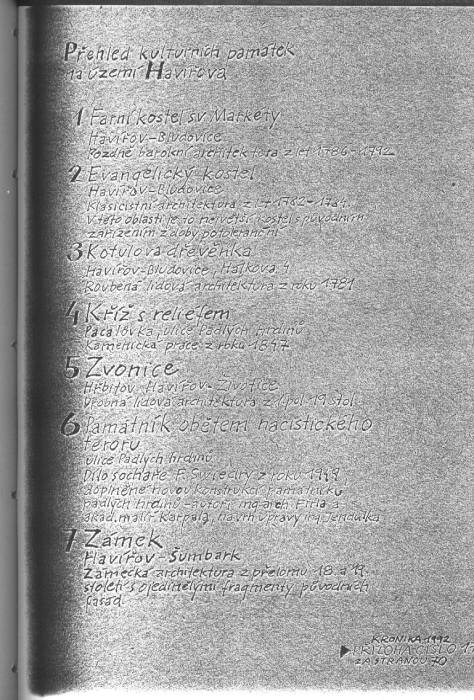 Přehled kulturních památek
na území Havířova
1 Farní kostel sv. Markéty
Havířov-Bludovice
Pozdně barokní architektura z let 1786-1792
2 Evangelický kostel
Havířov-Bludovice
Klasicistní architektura z let 1782-1784.
V této oblasti je to největší kostel s původním
zařízením z doby potoleranční
3 Kotulova dřevěnka
Havířov-Bludovice, Hálkova 4
Roubená lidová architektura z roku 1781
4 Kříž s reliéfem
Pacalovka, ulice Padlých hrdinů
Kamenická práce z roku 1847
5 Zvonice
Hřbitov Havířov-Životice
Drobná lidová architektura z 1. pol. 19. stol.
6 Památník obětem nacistického
teroru
ulice Padlých hrdinů
Dílo sochaře F. Swiedry z roku 1949
doplněné novou konstrukcí památníku
padlých hrdinů - autoři ing. arch. Firla a
akad. malíř Karpala, návrh úpravy ing. Jendulka
7 Zámek
Havířov-Šumbark
Zámecká architektura z přelomu 18. a 19.
století s ojedinělými fragmenty původních
fasád
KRONIKA 1992
PŘÍLOHA ČÍSLO
ZA STRANOU 70